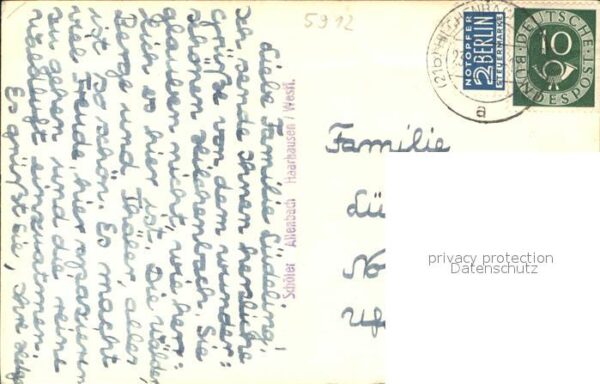 5912
Liebe Familie Lüdeling!
Ich sende Ihnen herzliche
Grüße von dem wunder-
schönen Hilchenbach. Sie
glauben nicht, wie herr-
lich es hier ist. Die Wälder,
Berge und Täler, alles
ist so schön. Es macht
viel Freude, hier spazieren
zu gehen und die reine
Waldluft einzuatmen.
Es grüßt Sie, Ihre Helga
Schöler Allenbach Haarhausen / Westf.
(21b) HILCHENBACH
a
NOTOPFER
2 BERLIN
STEUERMARKE
DEUTSCHE
BUNDESPOST
10
Familie
Lü
No
privacy protection
Datenschutz